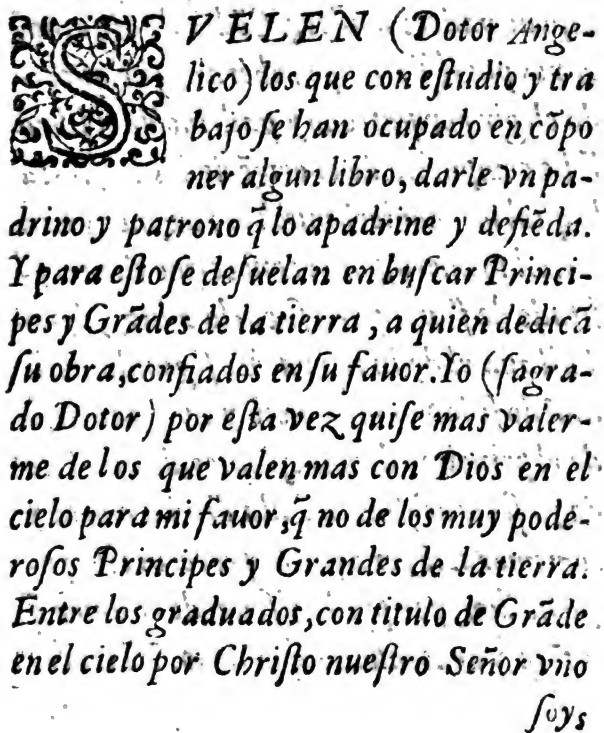 SVELEN (Dotor Ange-
lico) los que con eſtudio y tra
bajo ſe han ocupado en cõpo
ner algun libro, darle vn pa-
drino y patrono q̃ lo apadrine y defiẽda.
Y para eſto ſe deſuelan en buſcar Princi-
pes y Grãdes de la tierra, a quien dedicã
ſu obra, confiados en ſu fauor. Yo (ſagra-
do Dotor) por eſta vez quiſe mas valer-
me de los que valen mas con Dios en el
cielo para mi fauor, q̃ no de los muy pode-
roſos Principes y Grandes de la tierra.
Entre los graduados, con titulo de Grãde
en el cielo por Chriſto nueſtro Señor vno
ſoys